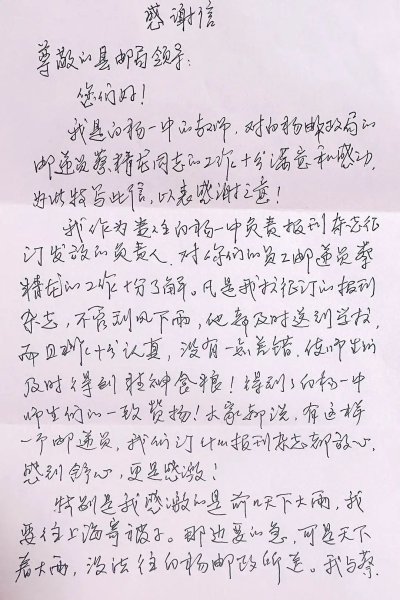 感谢信
尊敬的县邮局领导:
您们好!
我是白杨一中的教师,对白杨邮政局的
邮递员蔡精龙同志的工作十分满意和感动,
为此特写此信,以表感谢之意!
我作为贵住白杨一中负责报刊杂志征
订发放的负责人,对你们的员工邮递员蔡
精龙的工作十分了解。凡是我校征订的报刊
杂志,不管刮风下雨,他都及时送到学校,
而且工作十分认真,没有一点差错,使师生们
及时得到精神食粮!得到了白杨一中
师生们的一致赞扬!大家都说,有这样
一个邮递员,我们订什么报刊杂志都放心,
感到舒心,更是感激!
特别是我感激的是前几天下大雨,我
要往上海寄被子。那边要的急,可是天下
着大雨,没法往白杨邮政所送。我与蔡